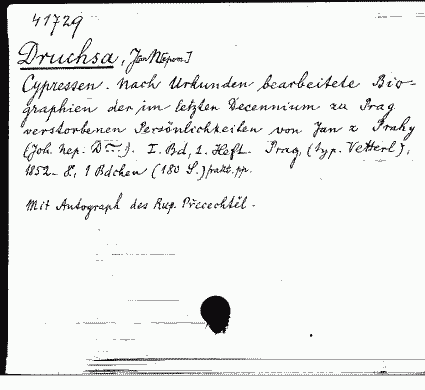 41729
Druchsa, Jan N[epom.]
Cypressen. Nach Urkunden bearbeitete Bio-
graphien der im letzten Decennium zu Prag
verstorbenen Persönlichkeiten von Jan z Prahy
(Joh. Nep. D ). I. Bd, 1. Heft. Prag, (typ. Vetterl),
1852. 8, 1 Bdchen (180 S.)
Mit Autograph des Rup. Přecechtěl.